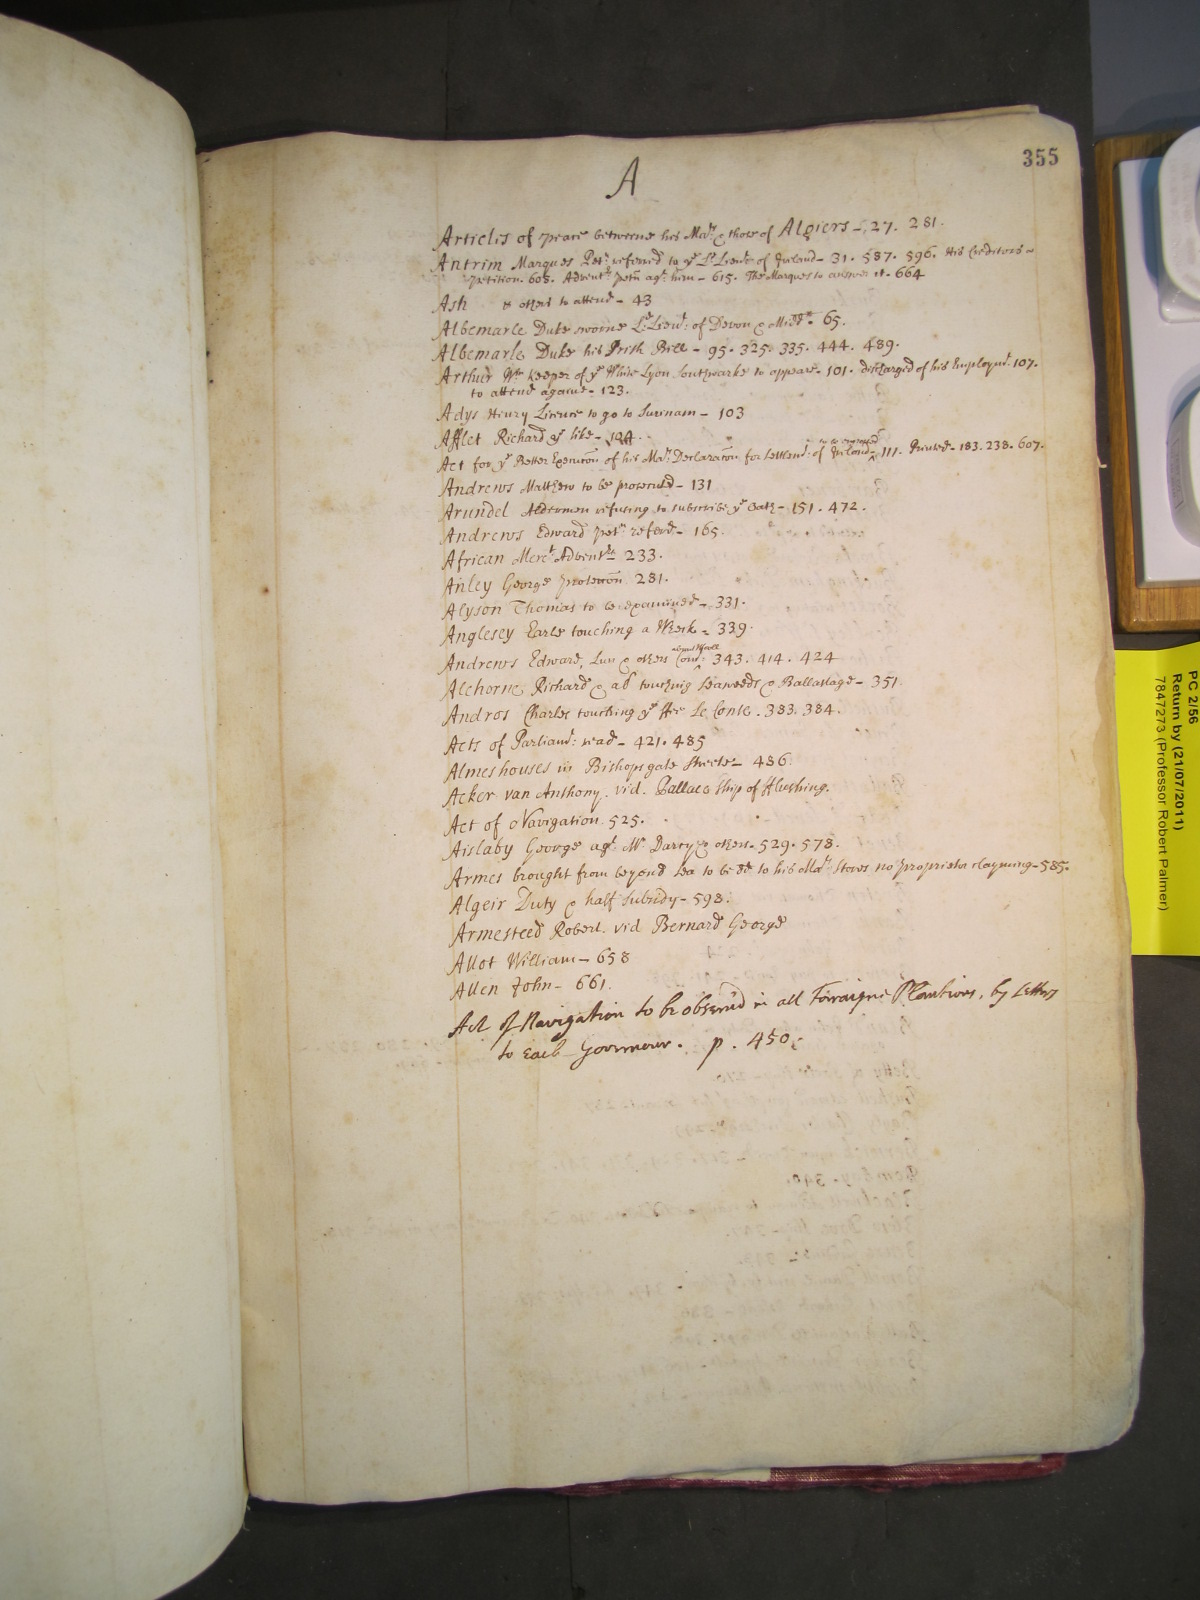 355
A
Articles of peace betweene his Maty & those of Algiers - 27. 281.
Antrim Marques Petn referred to ye Ld Lieut of Ireland - 31. 587. 596. His Creditors
petition. 608. Adventrs petn agt him - 615. The Marques to answer it. 664
Ash & others to attend - 43
Albemarle Duke sworne Ld Lieut: of Devon & Middx. 65.
Albemarle Duke his Irish Bill - 95. 325. 335. 444. 489.
Arthur Wm keeper of ye White Lyon Southwarke to appeare - 101. discharged of his Employmt. 107.
to attend againe - 123.
Adys Henry Licence to go to Surinam - 103
Afflet Richard ye like - 104.
Act for ye Better Execucon of his Mats Declaracon for Settlemt: of Ireland to be engrossed 111. Printed - 183. 238. 607.
Andrews Matthew to be prosecuted - 131
Arundel Aldermen refusing to subscribe ye Oath - 151. 472.
Andrews Edward petn referd - 165.
African Mercts Adventrs 233.
Anley George protection 281.
Alyson Thomas to be examined - 331.
Anglesey Earle touching a Wreck - 339.
Andrews Edward, & others 343. 414. 424
Alchorne Richard & al touching Seaweeds & Ballastage - 351.
Andros Charles touching ye Le Conte. 383. 384.
Acts of Parliamt: read - 421. 485
Almeshouses in Bishopsgate Streete - 486.
Acker van Anthony. vid. Pallace Ship of Flushing.
Act of Navigation. 525.
Aislaby George agt Mr Darcy & others. 529. 578.
Armes brought from beyond Sea to be dd to his Mats Stores no proprietor clayming - 585.
Algeir Duty & half Subsidy - 598.
Armesteed Robert. vid Bernard George
Allot William - 658
Allen John - 661.
Act of Navigation to be observed in all Forraigne Plantions, by Letters
to Each Governour. p. 450.
PC 2/56
Return by (21/07/2011)
7847273 (Professor Robert Palmer)